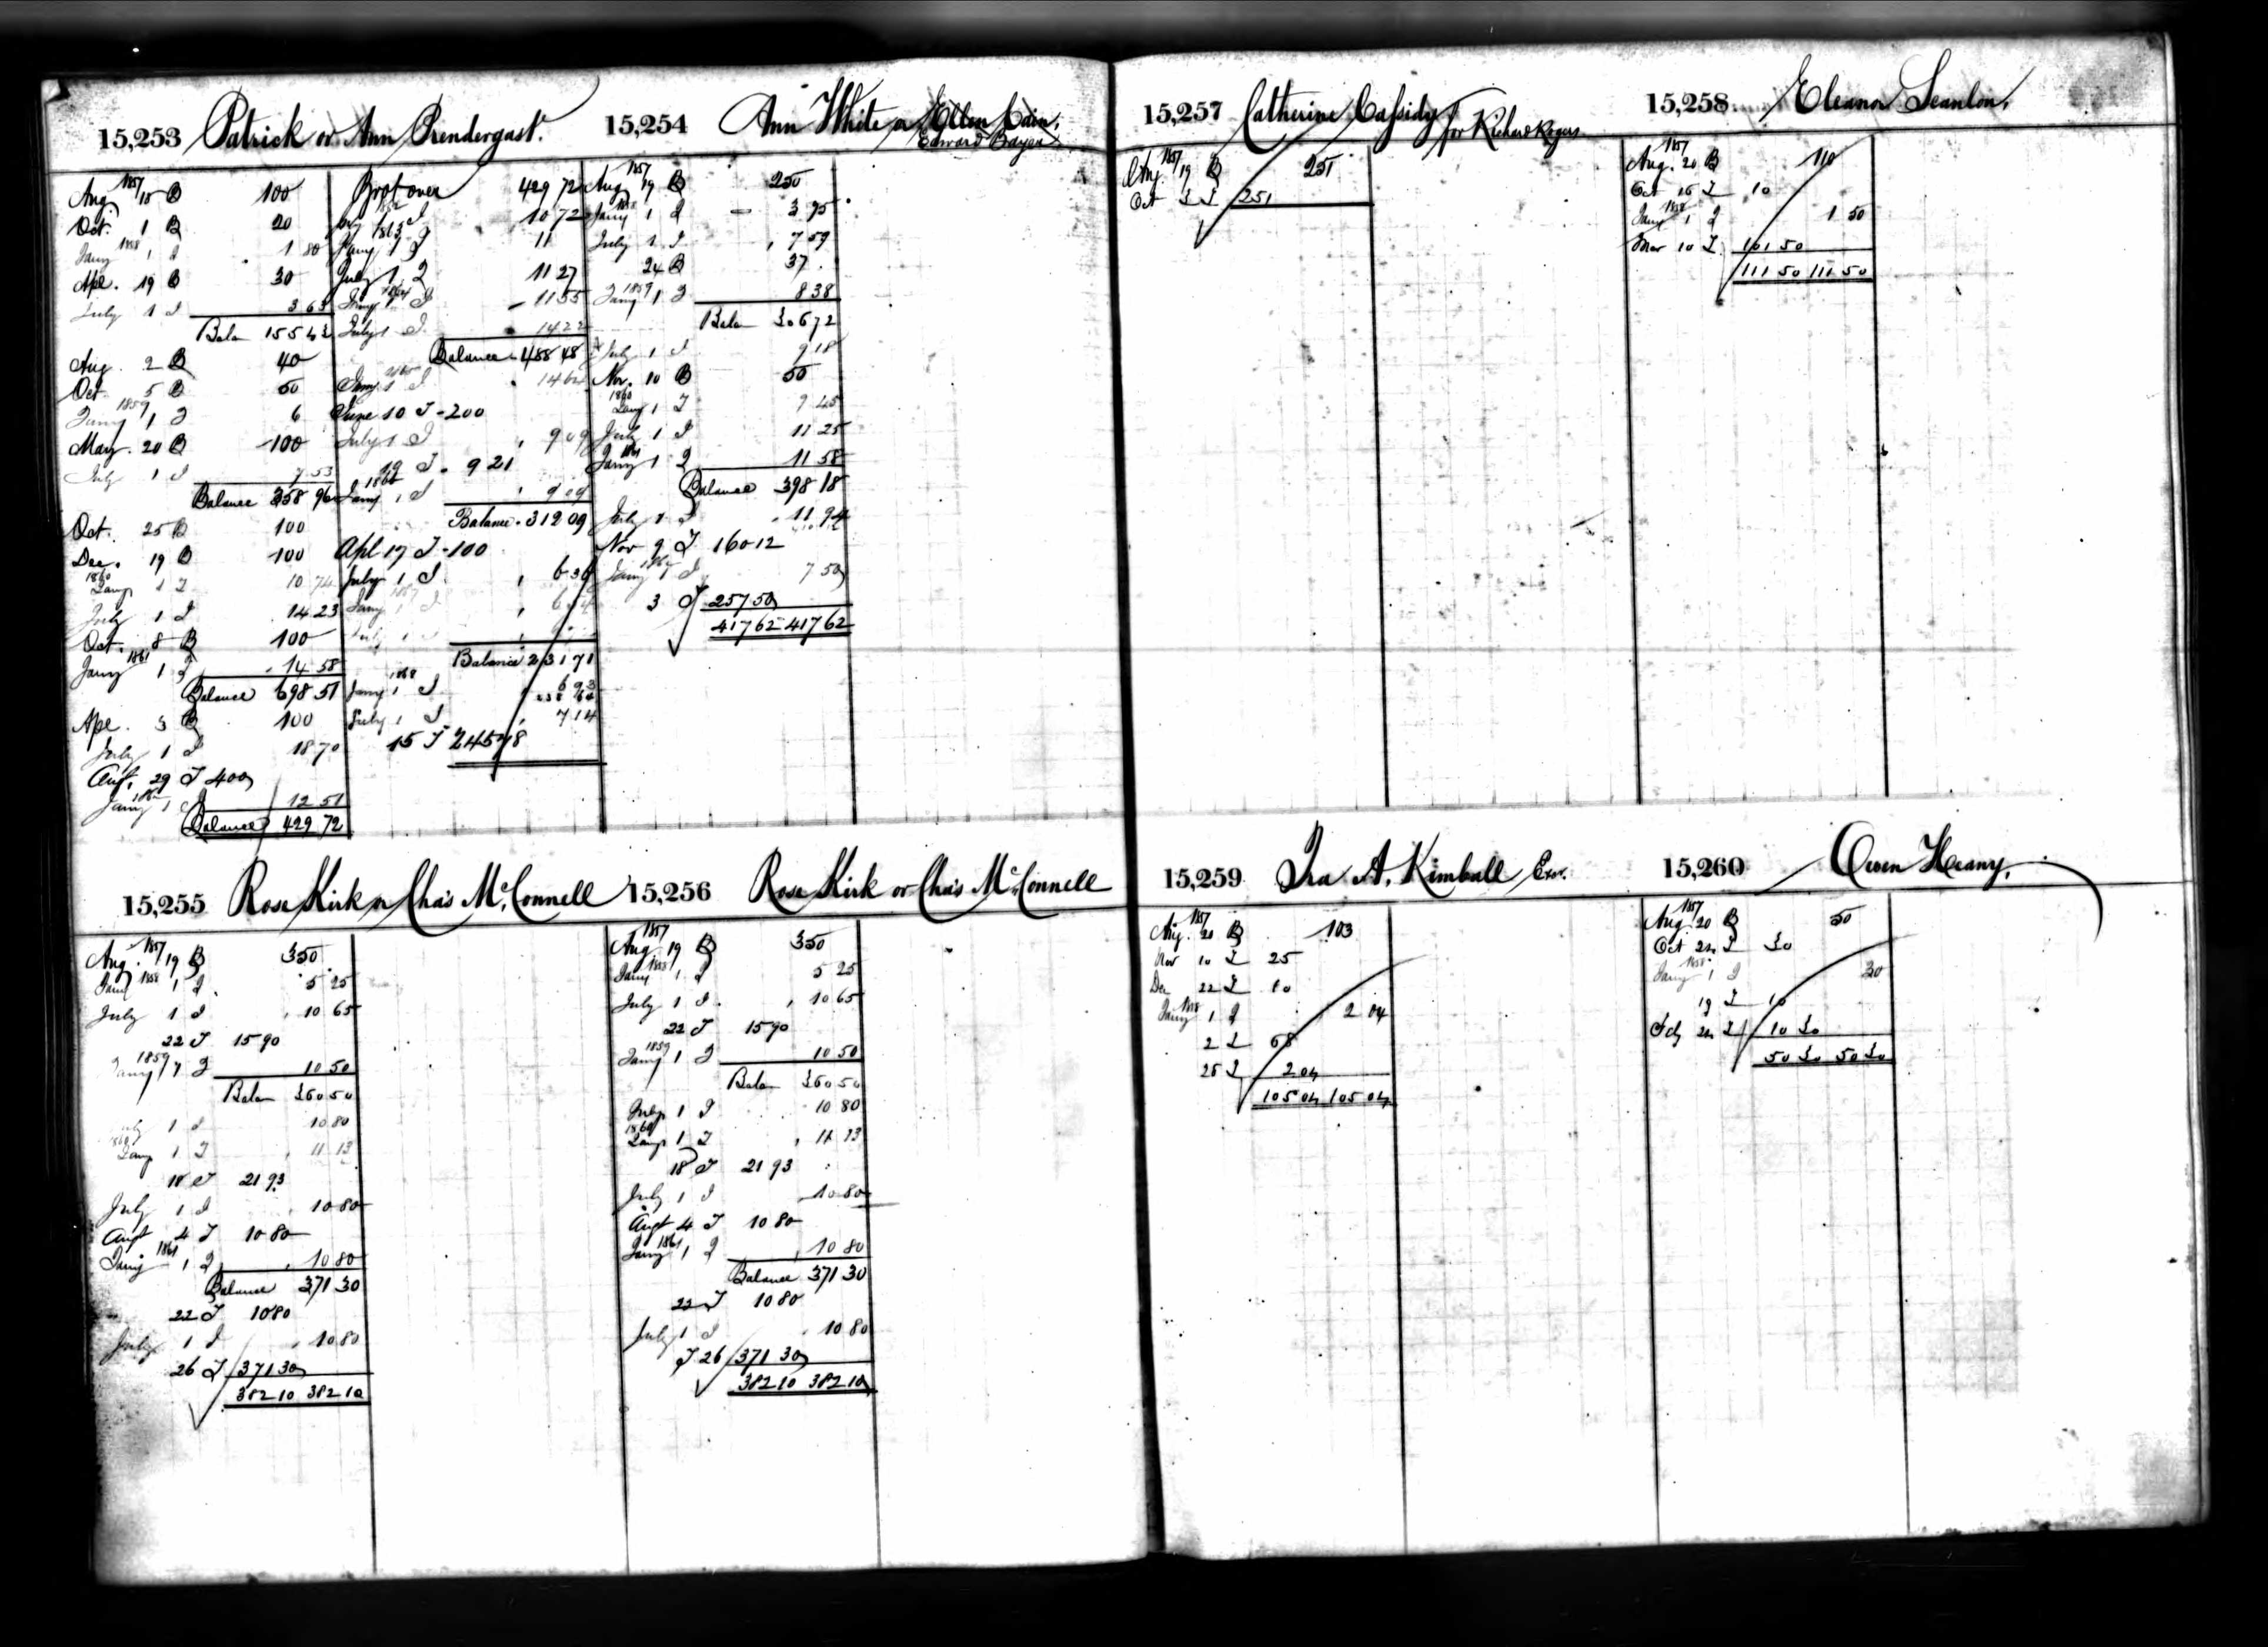 15,253 Patrick or Ann Prendergast.
1857
Aug 18 B 100
Oct. 1 B 20
1858
Jany 1 I 1 80
Apl. 19 B 30
July 1 I 3 63
Bala 155 43
Aug. 2 B 40
Oct 5 B 50
1859
Jany 1 I 6
May. 20 B 100
July 1 I 7 53
Balance 358 96
Oct. 25 B 100
Dec. 19 B 100
1860
Jany 1 I 10 74
July 1 I 14 23
Oct. 8 B 100
1861
Jany 1 I 14 58
Balance 698 51
Apl. 3 B 100
July 1 I 18 70
Augt. 29 T 400
1862
Jany 1 I 12 51
Balance 429 72
Brot over 429 72
July 1 I 10 72
1863
Jany 1 I 11
July 1 I 11 27
1864
Jany 1 I 11 55
July 1 I 14 22
Balance 488 48
Jany 1 I 14 64
June 10 T 200
July 1 I 9 09
19 T 9 21
1866
Jany 1 I 9 09
Balance 312 09
Apl 17 T 100
July 1 I 6 36
1867
Jany 1 I
July 1 I
Balance 231 71
1868
Jany 1 I 6 93
238 64
July 1 I 7 14
15 T 245 78
15,254 Ann White or Ellen Cain,
Edward Bayer
1857
Aug 19 B 250
1858
Jany 1 I 3 75
July 1 I 7 59
24 B 37
1859
Jany 1 I 8 38
Bala 306 72
July 1 I 9 18
Nov. 10 B 50
1860
Jany 1 I 9 45
July 1 I 11 25
1861
Jany 1 I 11 58
Balance 398 18
July 1 I 11 94
Nov 9 T 160 12
1862
Jany 1 I 7 50
3 T 257 50
417 62 417 62
15,255 Rose Kirk or Chas Mc.Connell
1857
Aug. 19 B 350
1858
Jany 1 I 5 25
July 1 I 10 65
22 T 15 90
1859
Jany 1 I 10 50
Bala 360 50
July 1 I 10 80
1860
Jany 1 I 11 13
18 T 21 93
July 1 I 10 80
Augt 4 T 10 80
1861
Jany 1 I 10 80
Balance 371 30
22 T 10 80
July 1 I 10 80
26 T 371 30
382 10 382 10
15,256 Rose Kirk or Chas Mc.Connell
1857
Aug 19 B 350
1858
Jany 1 I 5 25
July 1 I 10 65
22 T 15 90
1859
Jany 1 I 10 50
Bala 360 50
July 1 I 10 80
1860
Jany 1 I 11 13
18 T 21 93
July 1 I 10 80
Augt 4 T 10 80
1861
Jany 1 I 10 80
Balance 371 30
22 T 10 80
July 1 I 10 80
T 26 371 30
382 10 382 10
15,257 Catherine Cassidy for Richard Rogers
1857
Aug. 19 B 251
Oct 3 T 251
15,258 Eleanor Scanlon,
1857
Aug. 20 B 110
Oct 16 T 10
1858
Jany 1 I 1 50
Mar 10 T 101 50
111 50 111 50
15,259 Ira A. Kimball Exor.
1857
Aug. 20 B 103
Nov 10 T 25
Dec 22 T 10
1858
Jany 1 I 2 04
2 T 68
25 T 2 04
105 04 105 04
15,260 Owen Heany,
1857
Aug. 20 B 50
Oct 24 T 30
1858
Jany 1 I 30
19 T 10
Feby 24 T 10 30
50 30 50 30